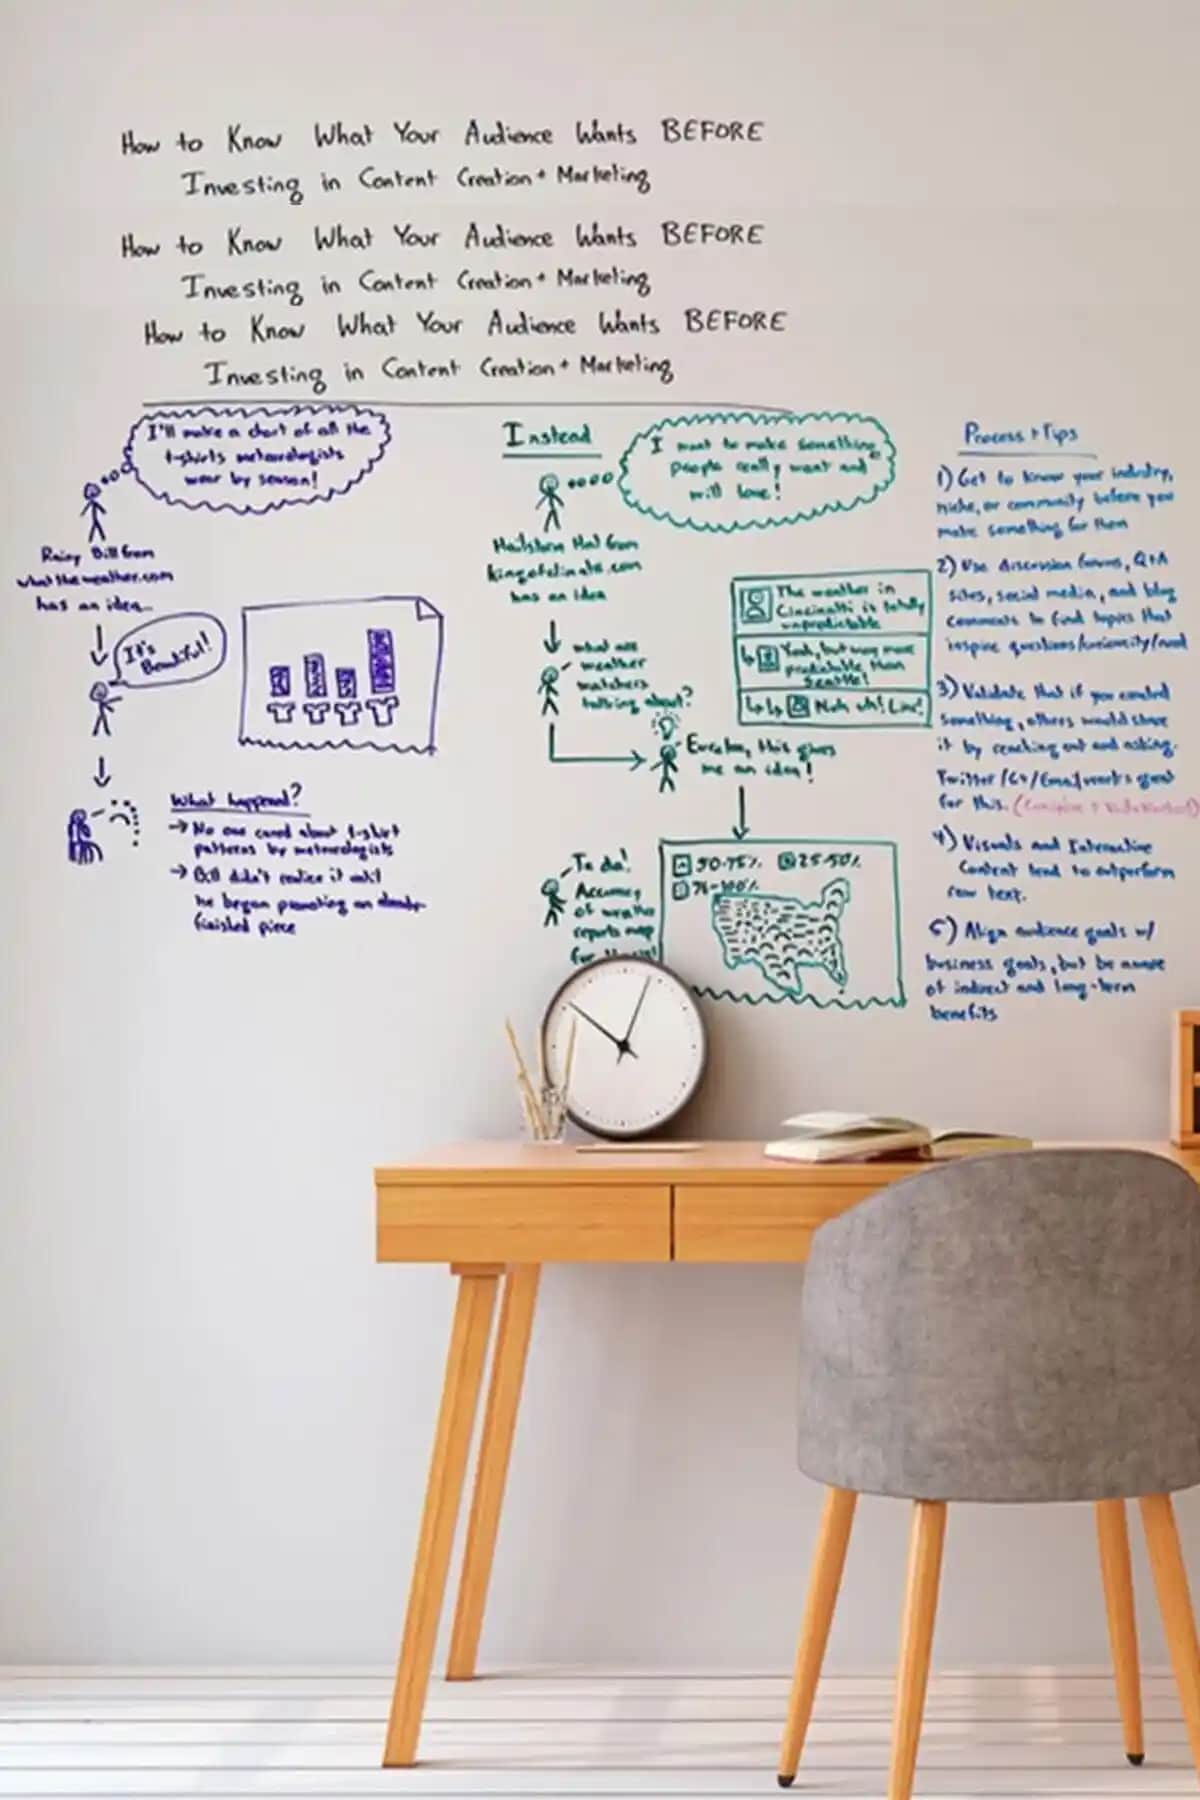 How to Know What Your Audience Wants BEFORE
Investing in Content Creation + Marketing
How to Know What Your Audience Wants BEFORE
Investing in Content Creation + Marketing
How to Know What Your Audience Wants BEFORE
Investing in Content Creation + Marketing
I'll make a chart of all the
t-shirts meteorologists
wear by season!
Rainy Bill from
whattheweather.com
has an idea...
It's
Beautiful!
What happened?
→ No one cared about t-shirt
patterns by meteorologists
→ Bill didn't realize it until
he began promoting an already-
finished piece
Instead
I want to make something
people really want and
will love!
Hailstorm Hal from
kingofclimate.com
has an idea
what are
weather
watchers
talking about?
The weather in
Cincinatti is totally
unpredictable
Yeah, but way more
predictable than
Seattle!
Nuh uh! Liar!
Eureka, this gives
me an idea!
Ta da!
Accuracy
of weather
reports map
for the
50-75% 25-50%
76-100%
Process + Tips
1) Get to know your industry,
niche, or community before you
make something for them
2) Use discussion forums, Q+A
sites, social media, and blog
comments to find topics that
inspire questions/curiosity/need
3) Validate that if you created
something, others would share
it by reaching out and asking.
Twitter/G+/Email/ great
for this.
4) Visuals and Interactive
Content tend to outperform
raw text.
5) Align audience goals w/
business goals, but be aware
of indirect and long-term
benefits